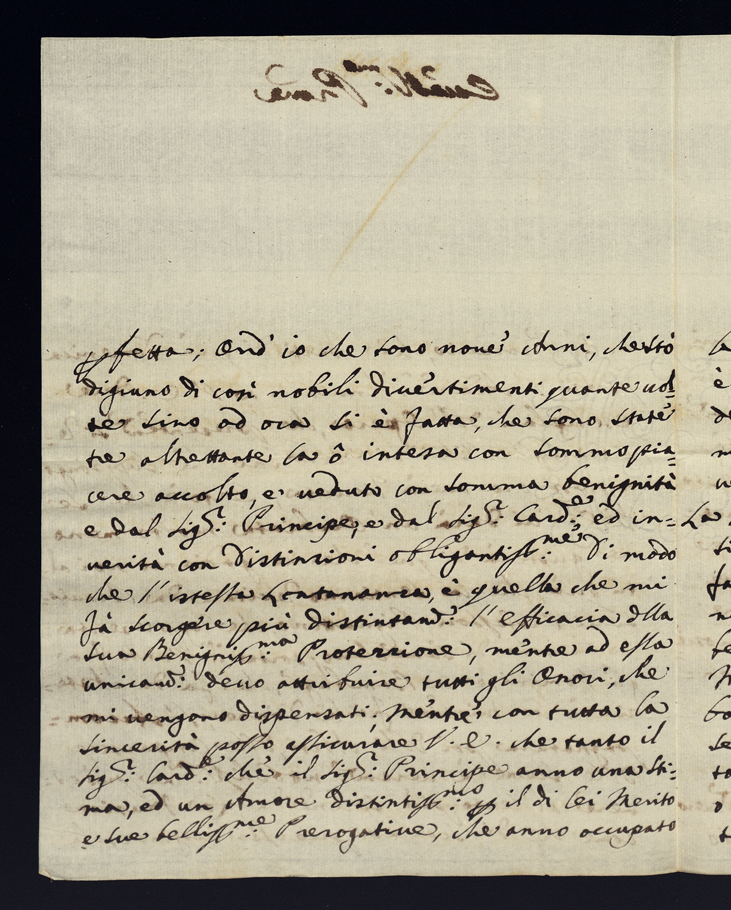 pfetta; Ond' io che sono nove Anni, che stò
digiuno di così nobili divertimenti quante vol=
te sino ad ora si è fatta, che sono state
tre altrettante la ô intesa con sommo pia=
cere accolto, e veduto con somma benignità
e dal Sig.r: Principe, e dal Sig.r: Card.e: ed in=
verità con distinzioni obligantiss.me: Di modo
che l'istessa Lontananza, è quella che mi
fà scorgere più distintam.e: l'efficacia dlla
sua Benigniss.ma: Protezzione, mentre ad essa
unicam.e: devo attribuire tutti gli Onori, che
mi vengono dispensati; Mentre con tutta la
sincerità posso assicurare V. E. che tanto il
Sig.r: Card.e: che il Sig.r: Principe anno una Sti=
ma, ed un Amore distintiss.mo: p il di lei Merito
e sue belliss.me: Prerogative, che anno occupato